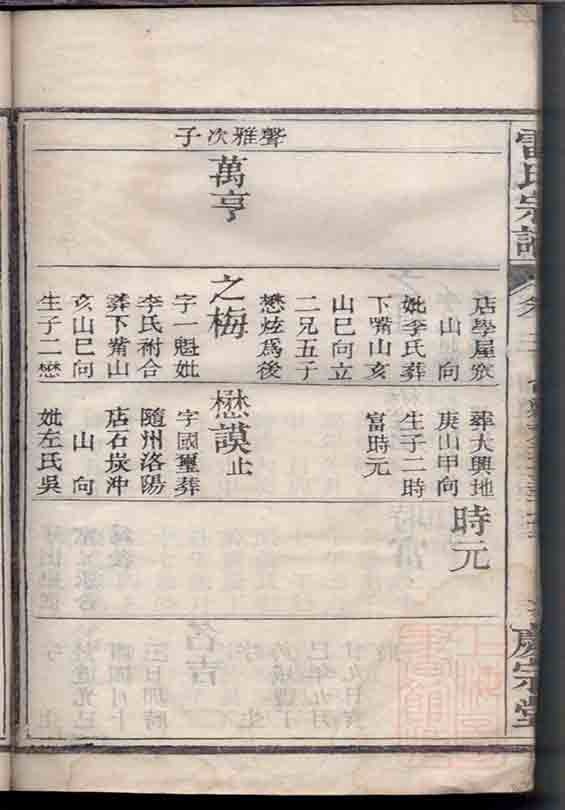 雷氏宗譜
慶宗堂
聲雅次子
萬亨
店學屋衆
山向
妣李氏葬
下嘴山亥
山巳向立
二兄五子
懋炫為後
之梅
字一魁妣
李氏祔合
葬下嘴山
亥山巳向
生子二懋
葬大興地
庚山甲向
生子二時
富時元
懋謨止
字國璽葬
隨州洛陽
店石炭沖
山向
妣左氏吳
時元